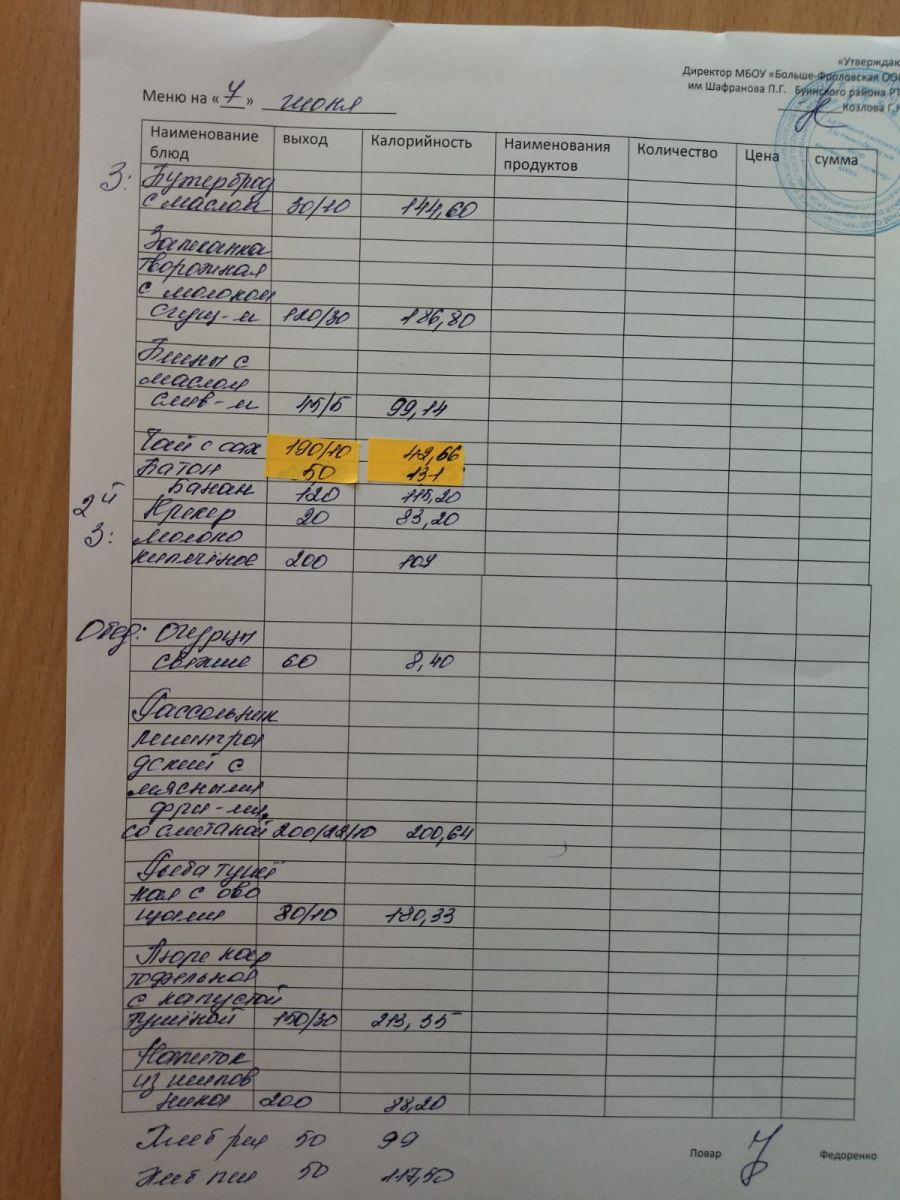 «Утверждаю
Директор МБОУ «Больше-Фроловская ООШ
им Шафранова П.Г. Буинского района РТ
Козлова Г.
Меню на « 7 » июня
Наименование блюд выход Калорийность Наименования продуктов Количество Цена сумма
З: Бутерброд
с маслом 30/10 144,60
Запеканка
творожная
с молоком
сгущ-м 120/30 186,80
Блины с
маслом
слив-м 45/5 99,14
Чай с сах 190/10 42,66
Батон 50 131
Банан 120 115,20
2й Крекер 20 83,20
З: молоко
кипечёное 200 104
Обед: Огурцы
свежие 60 8,40
Рассольник
ленингра
дский с
мясными
фри-ми,
со сметаной 200/22/10 200,64
Рыба тушё
ная с ово
щами 80/10 180,33
Пюре кар
тофельное
с капустой
тушёной 150/30 213,35
Напиток
из шипов
ника 200 88,20
Хлеб рж 50 99
Хлеб пш 50 117,50
Повар Федоренко